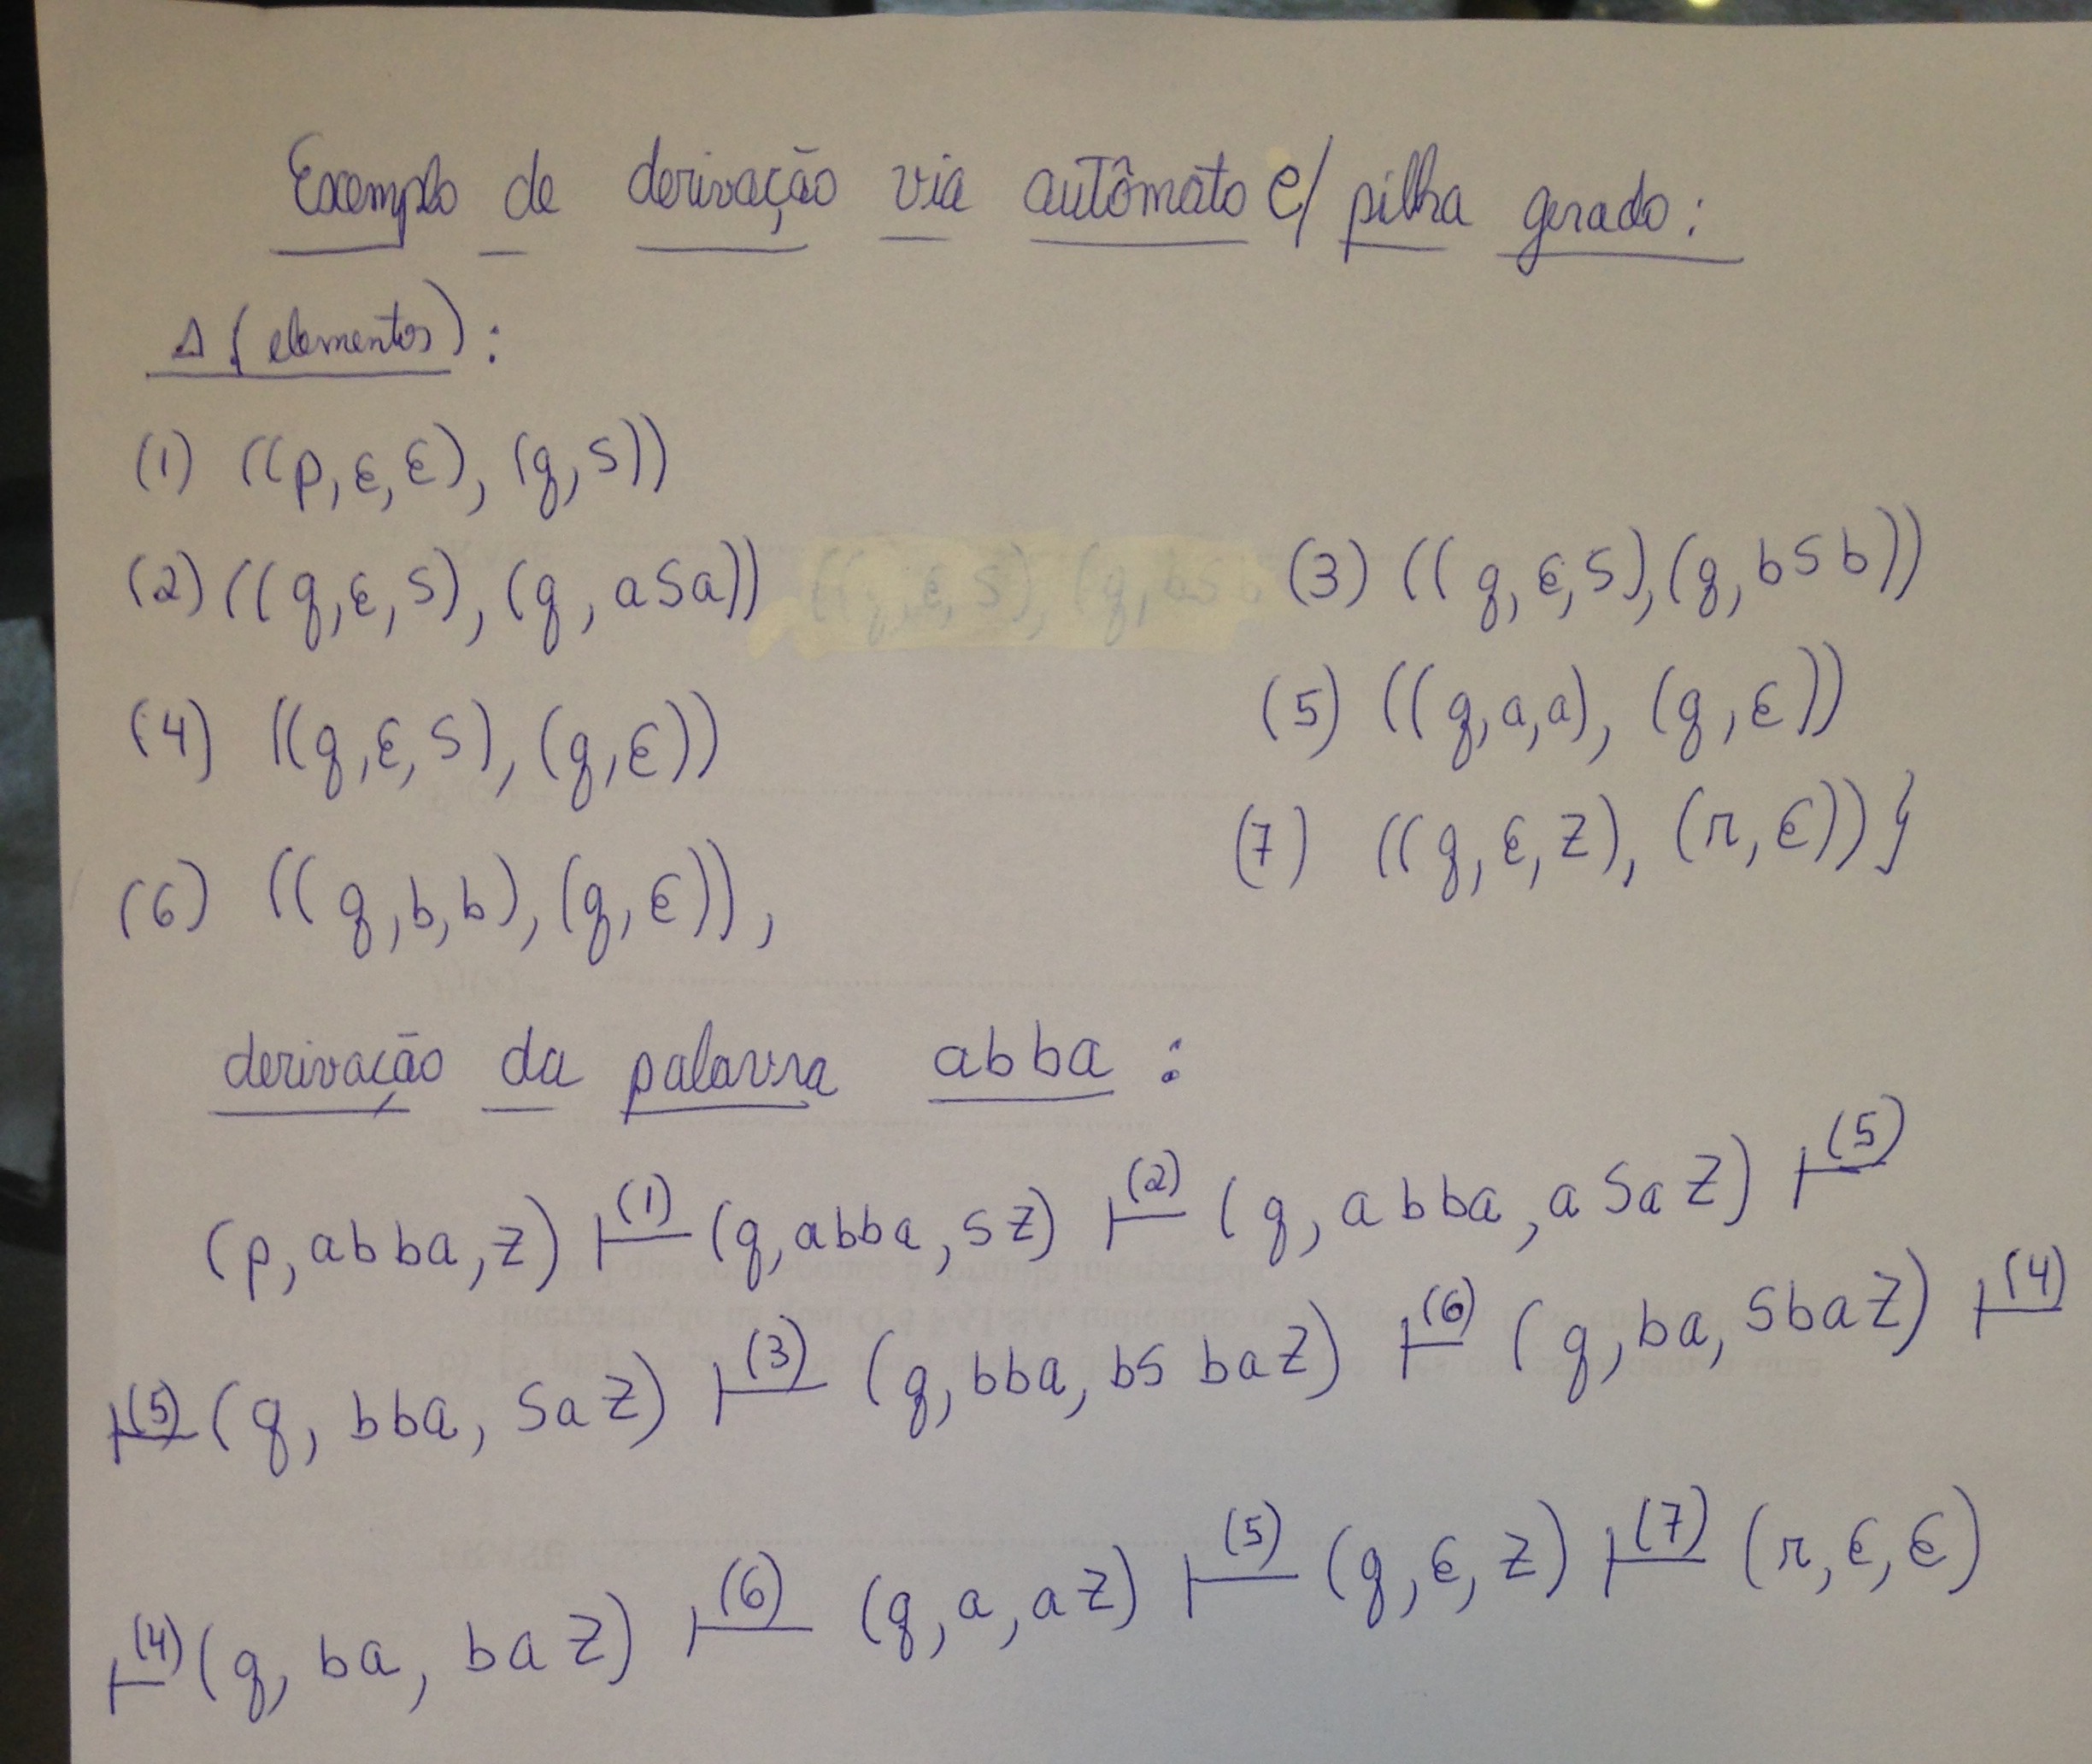 Exemplo de derivação via autômato c/ pilha gerado:
Δ (elementos):
(1) ((p,ε,ε), (q,S))
(2) ((q,ε,S), (q, aSa)) ((q,ε,S), (q,bSb (3) ((q,ε,S),(q,bSb))
(4) ((q,ε,S),(q,ε)) (5) ((q,a,a), (q,ε))
(6) ((q,b,b),(q,ε)), (7) ((q,ε,Z), (r,ε))}
derivação da palavra abba :
(p,abba,Z) ⊢(1) (q,abba,SZ) ⊢(2) (q,abba,aSaZ) ⊢(5)
⊢(5) (q, bba, SaZ) ⊢(3) (q,bba,bSbaZ) ⊢(6) (q,ba,SbaZ) ⊢(4)
⊢(4) (q, ba, baZ) ⊢(6) (q,a,aZ) ⊢(5) (q,ε,Z) ⊢(7) (r,ε,ε)